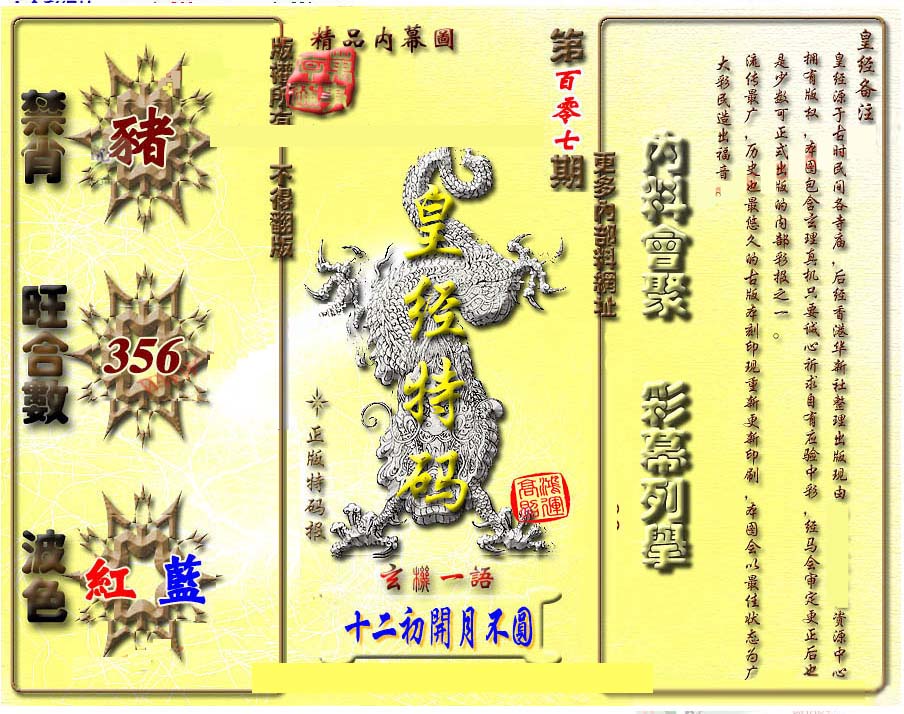 精品内幕圖
第百零七期
版權所有
不得翻版
更多內部料網址
禁肖
豬
旺合數
356
波色
紅 藍
皇经特码
正版特码报
鴻運高照
玄機一語
十二初開月不圓
內料會聚
彩幕列舉
皇经备注
皇经源于古时民间各寺庙,后经香港华新社整理出版现由 资源中心
拥有版权,本图包含玄理真机只要诚心祈求自有应验中彩,经马会审定更正后也
是少数可正式出版的内部彩报之一。
流传最广,历史也最悠久的古版本刻印现重新更新印刷,本图会以最佳状态为广
大彩民造出福音